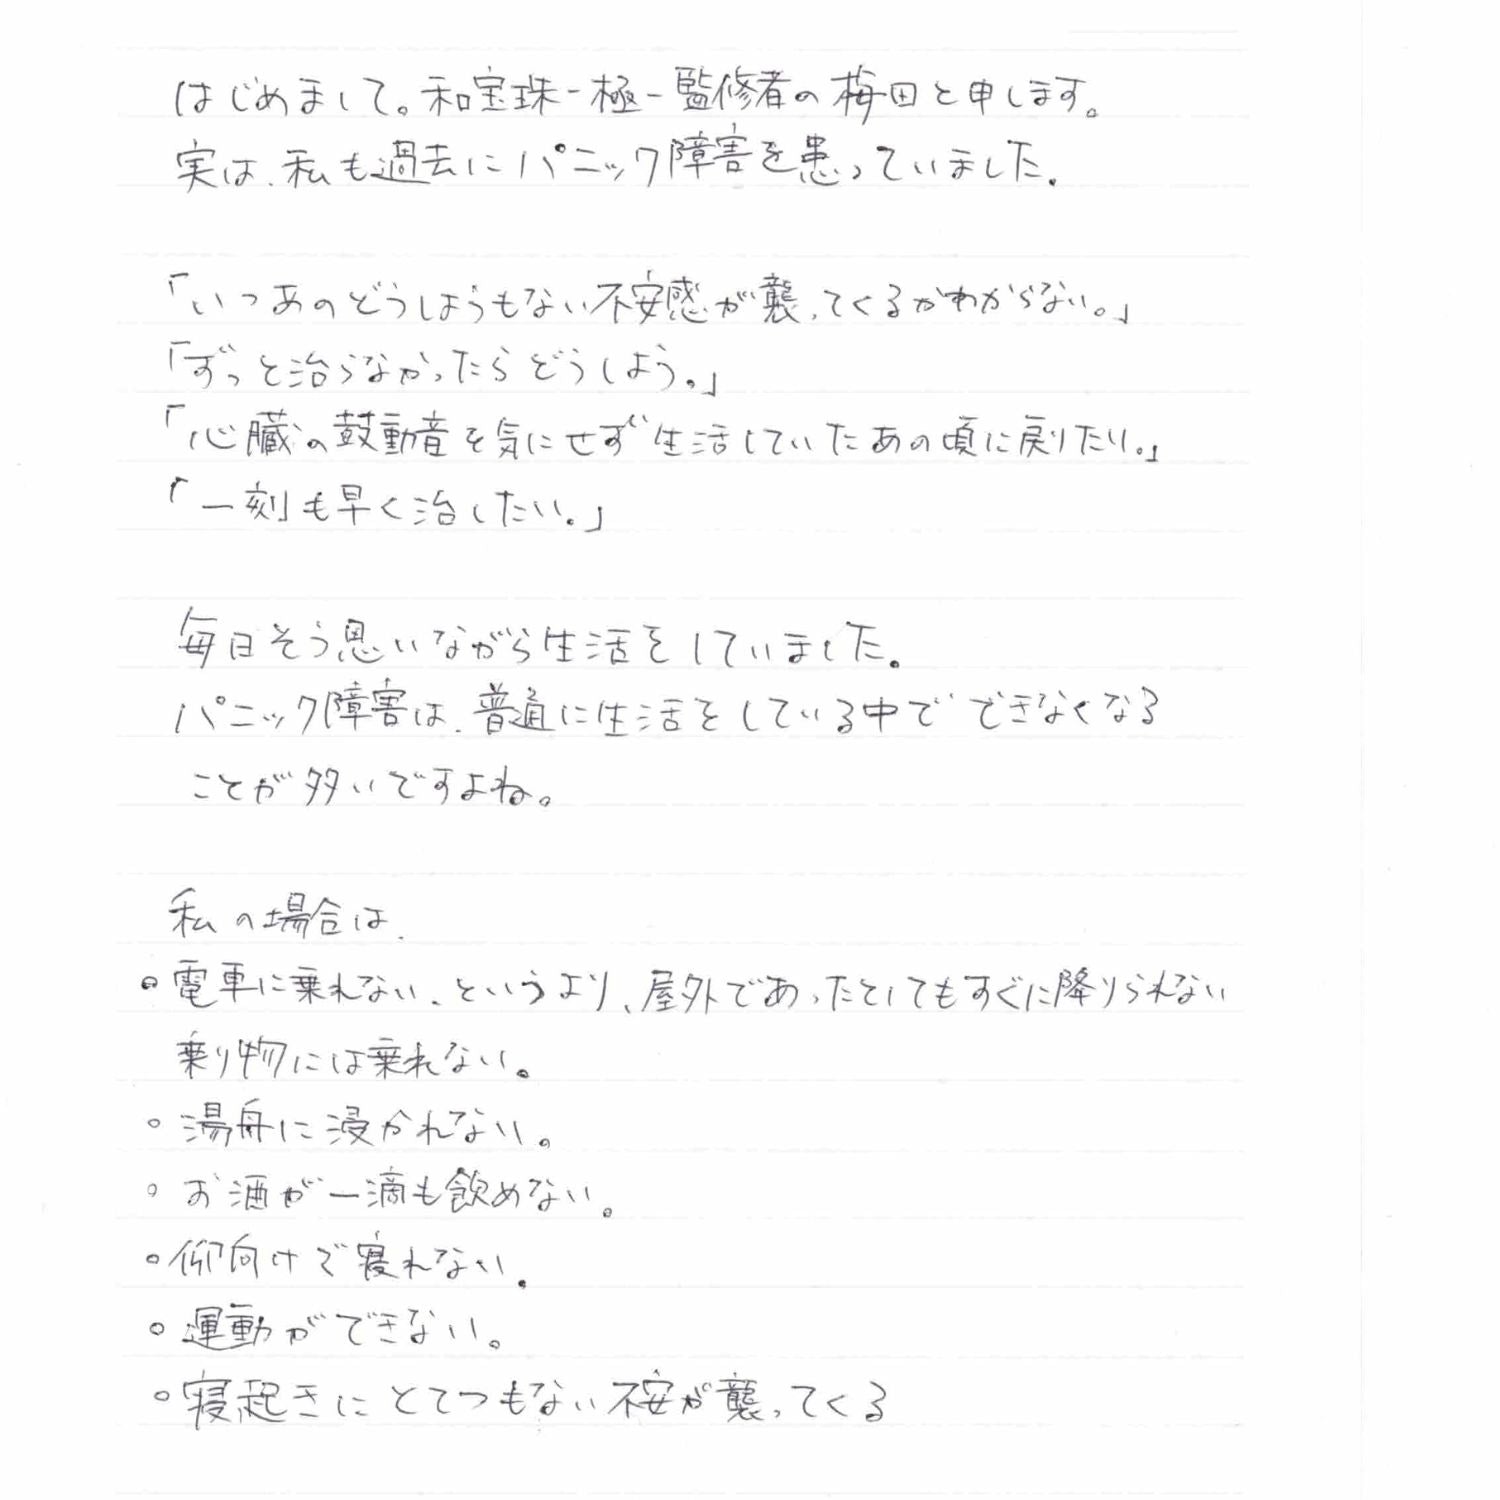 はじめまして。和宝珠-極-監修者の梅田と申します。
実は、私も過去にパニック障害を患っていました。
「いつあのどうしようもない不安感が襲ってくるかわからない。」
「ずっと治らなかったらどうしよう。」
「心臓の鼓動音を気にせず生活していたあの頃に戻りたい。」
「一刻も早く治したい。」
毎日そう思いながら生活をしていました。
パニック障害は、普通に生活をしている中でできなくなる
ことが多いですよね。
私の場合は、
◦電車に乗れない、というより、屋外であったとしてもすぐに降りられない
乗り物には乗れない。
◦湯舟に浸かれない。
◦お酒が一滴も飲めない。
◦仰向けで寝れない。
◦運動ができない。
◦寝起きにとてつもない不安が襲ってくる